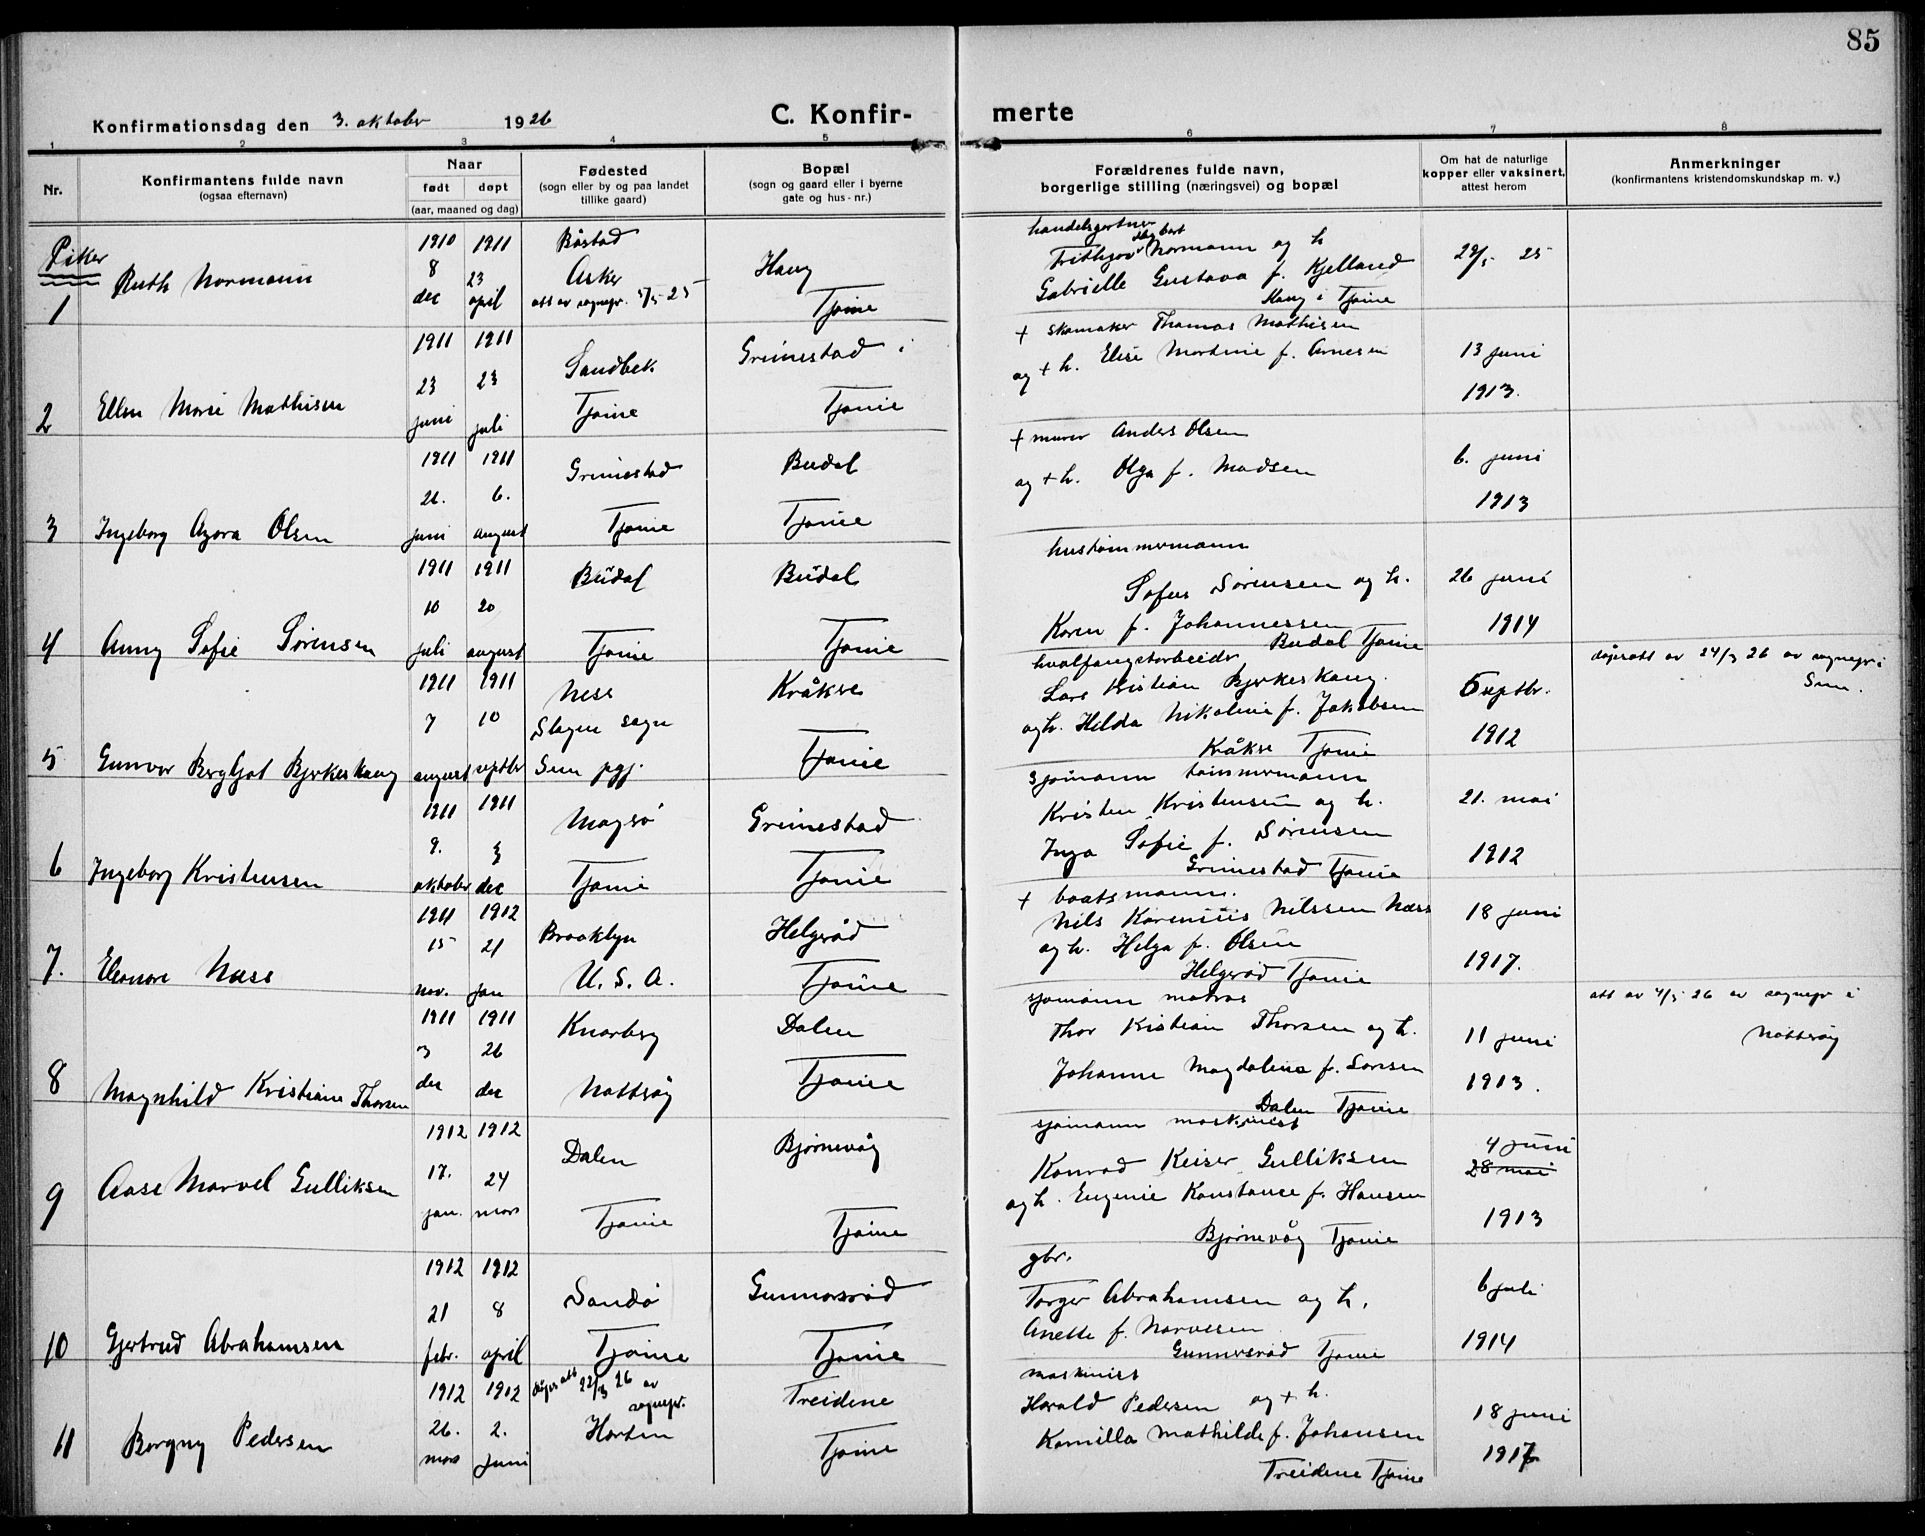 85
Konfirmationsdag den 3. oktober 1926
C. Konfirmerte
1 2 3 4 5 6 7 8
Nr.
Konfirmantens fulde navn
(ogsaa efternavn)
Naar
født døpt
(aar, maaned og dag)
Fødested
(sogn eller by og paa landet
tillike gaard)
Bopæl
(sogn og gaard eller i byerne
gate og hus-nr.)
Forældrenes fulde navn,
borgerlige stilling (næringsvei) og bopæl
Om hat de naturlige
kopper eller vaksinert,
attest herom
Anmerkninger
(konfirmantens kristendomskundskap m. v.)
Piker
1 Ruth Normann
1910 8 dec
1911 23 april
Båstad
Asker
att av sognepr. 5/5 25
Haug
Tjøme
handelsgartner
Frithjov Normann og h
Gabrielle Gustava f. Kjelland
Haug i Tjøme
28/5 25
2 Ellen Marie Mathisen
1911 23 juni
1911 23 juli
Sandbek
Tjøme
Grimestad i
Tjøme
+ skomaker Thomas Mathisen
og + h. Elise Martine f. Arnesen
13 juni
1913.
3 Ingeborg Agora Olsen
1911 21. juni
1911 6. august
Grimestad
Tjøme
Budal
Tjøme
+ murer Anders Olsen
og + h. Olga f. Madsen
6. juni
1913
4 Anny Sofie Sørensen
1911 10 juli
1911 20 august
Budal
Tjøme
Budal
Tjøme
hustømmermann
Sofus Sørensen og h.
Karen f. Johannessen
Budal Tjøme
26 juni
1914
5 Gunvor Bergljot Bjerkeskaug
1911 7 august
1911 10 septbr
Ness
Slagen sogn
Sem pgj.
Kråkse
Tjøme
hvalfangstarbeider
Lars Kristian Bjerkeskaug.
og h. Hilda Nikoline f. Jakobsen
Kråkse Tjøme
5 septbr.
1912
døpeatt av 24/3 26 av sognepr i
Sem.
6 Ingeborg Kristensen
1911 9. oktober
1911 3 dec
Magsø
Tjøme
Grimestad
Tjøme
sjømann tømmermann
Kristen Kristensen og h.
Inga Sofie f. Sørensen
Grimestad Tjøme
21. mai
1912
7. Eleonore Næss
1911 15 nov.
1912 21 jan
Brooklyn
U. S. A.
Helgerød
Tjøme
+ baatsmann.
Nils Karenius Nilssen Næss
og h. Helga f. Olsen
Helgerød Tjøme
18 juni
1917.
8 Magnhild Kristiane Thorsen
1911 3 dec
1911 26 dec
Knarberg
Nøtterøy
Dalen
Tjøme
sjømann matros
Thor Kristian Thorsen og h.
Johanne Magdalena f. Larsen
Dalen Tjøme
11 juni
1913.
att av 4/5 26 av sognepr i
Nøtterøy
9 Aase Marvel Gulliksen
1912 17. jan.
1912 24 mars
Dalen
Tjøme
Bjørnevåg
Tjøme
sjømann maskinist
Konrad Keiser Gulliksen
og h. Eugenie Konstance f. Hansen
Bjørnevåg Tjøme
4 juni
28 mai
1913
10 Gjertrud Abrahamsen
1912 21 febr.
1912 8 april
Sandø
Tjøme
Gunnarsrød
Tjøme
gbr.
Torger Abrahamsen og h.
Anette f. Narvesen
Gunnarsrød Tjøme
6 juli
1914
11 Borgny Pedersen
1912 26. mars
1912 2. juni
døpeatt 22/3 26 av
sognepr.
Horten
Treidene
Tjøme
maskinist
Harald Pedersen og + h.
Kamilla Mathilde f. Johansen
Treidene Tjøme
18 juni
1917